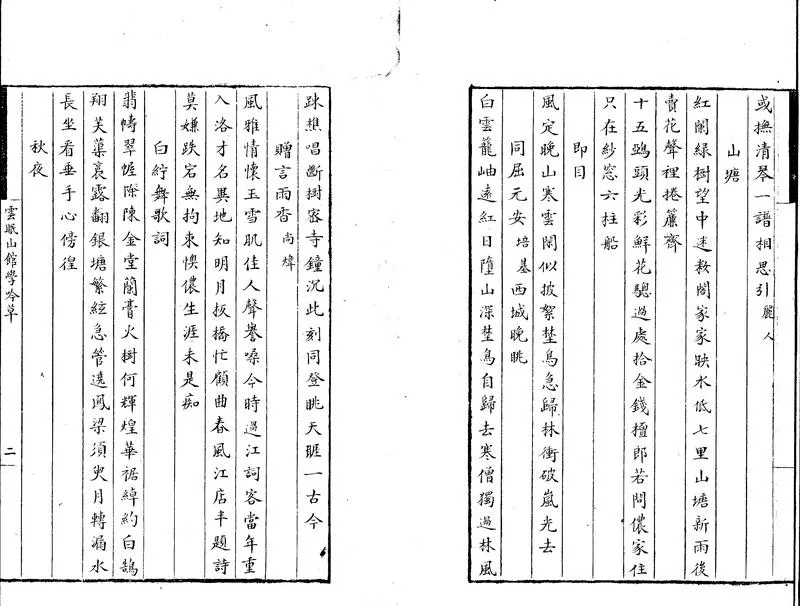 或撫清琴一譜相思引麗人
山塘
紅闌綠樹望中迷敎閣家家映水低七里山塘新雨後
賣花聲裡捲簾齊
十五鵶頭光彩鮮花驄過處拾金錢檀郎若問儂家住
只在紗窓六柱船
即目
風定晚山寒雲閑似披絮埜鳥急歸林衝破嵐光去
同屈元安培基西城晚眺
白雲籠岫遠紅日墮山深埜鳥自歸去寒僧獨過林風
疎樵唱斷樹密寺鐘沉此刻同登眺天踁一古今
贈言雨香尚煒
風雅情懷玉雪肌佳人聲譽噪今時過江詞客當年重
入洛才名異地知明月板橋忙顧曲春風江店半題詩
莫嫌跌宕無拘束懊儂生涯未是痴
白紵舞歌詞
翡幬翠幄際陳金堂蘭膏火樹何輝煌華裾綽約白鵠
翔芙蕖裛露翻銀塘繁絃急管遶鳳梁須臾月轉漏水
長坐看垂手心傍徨
秋夜
雲眠山館學吟草
二